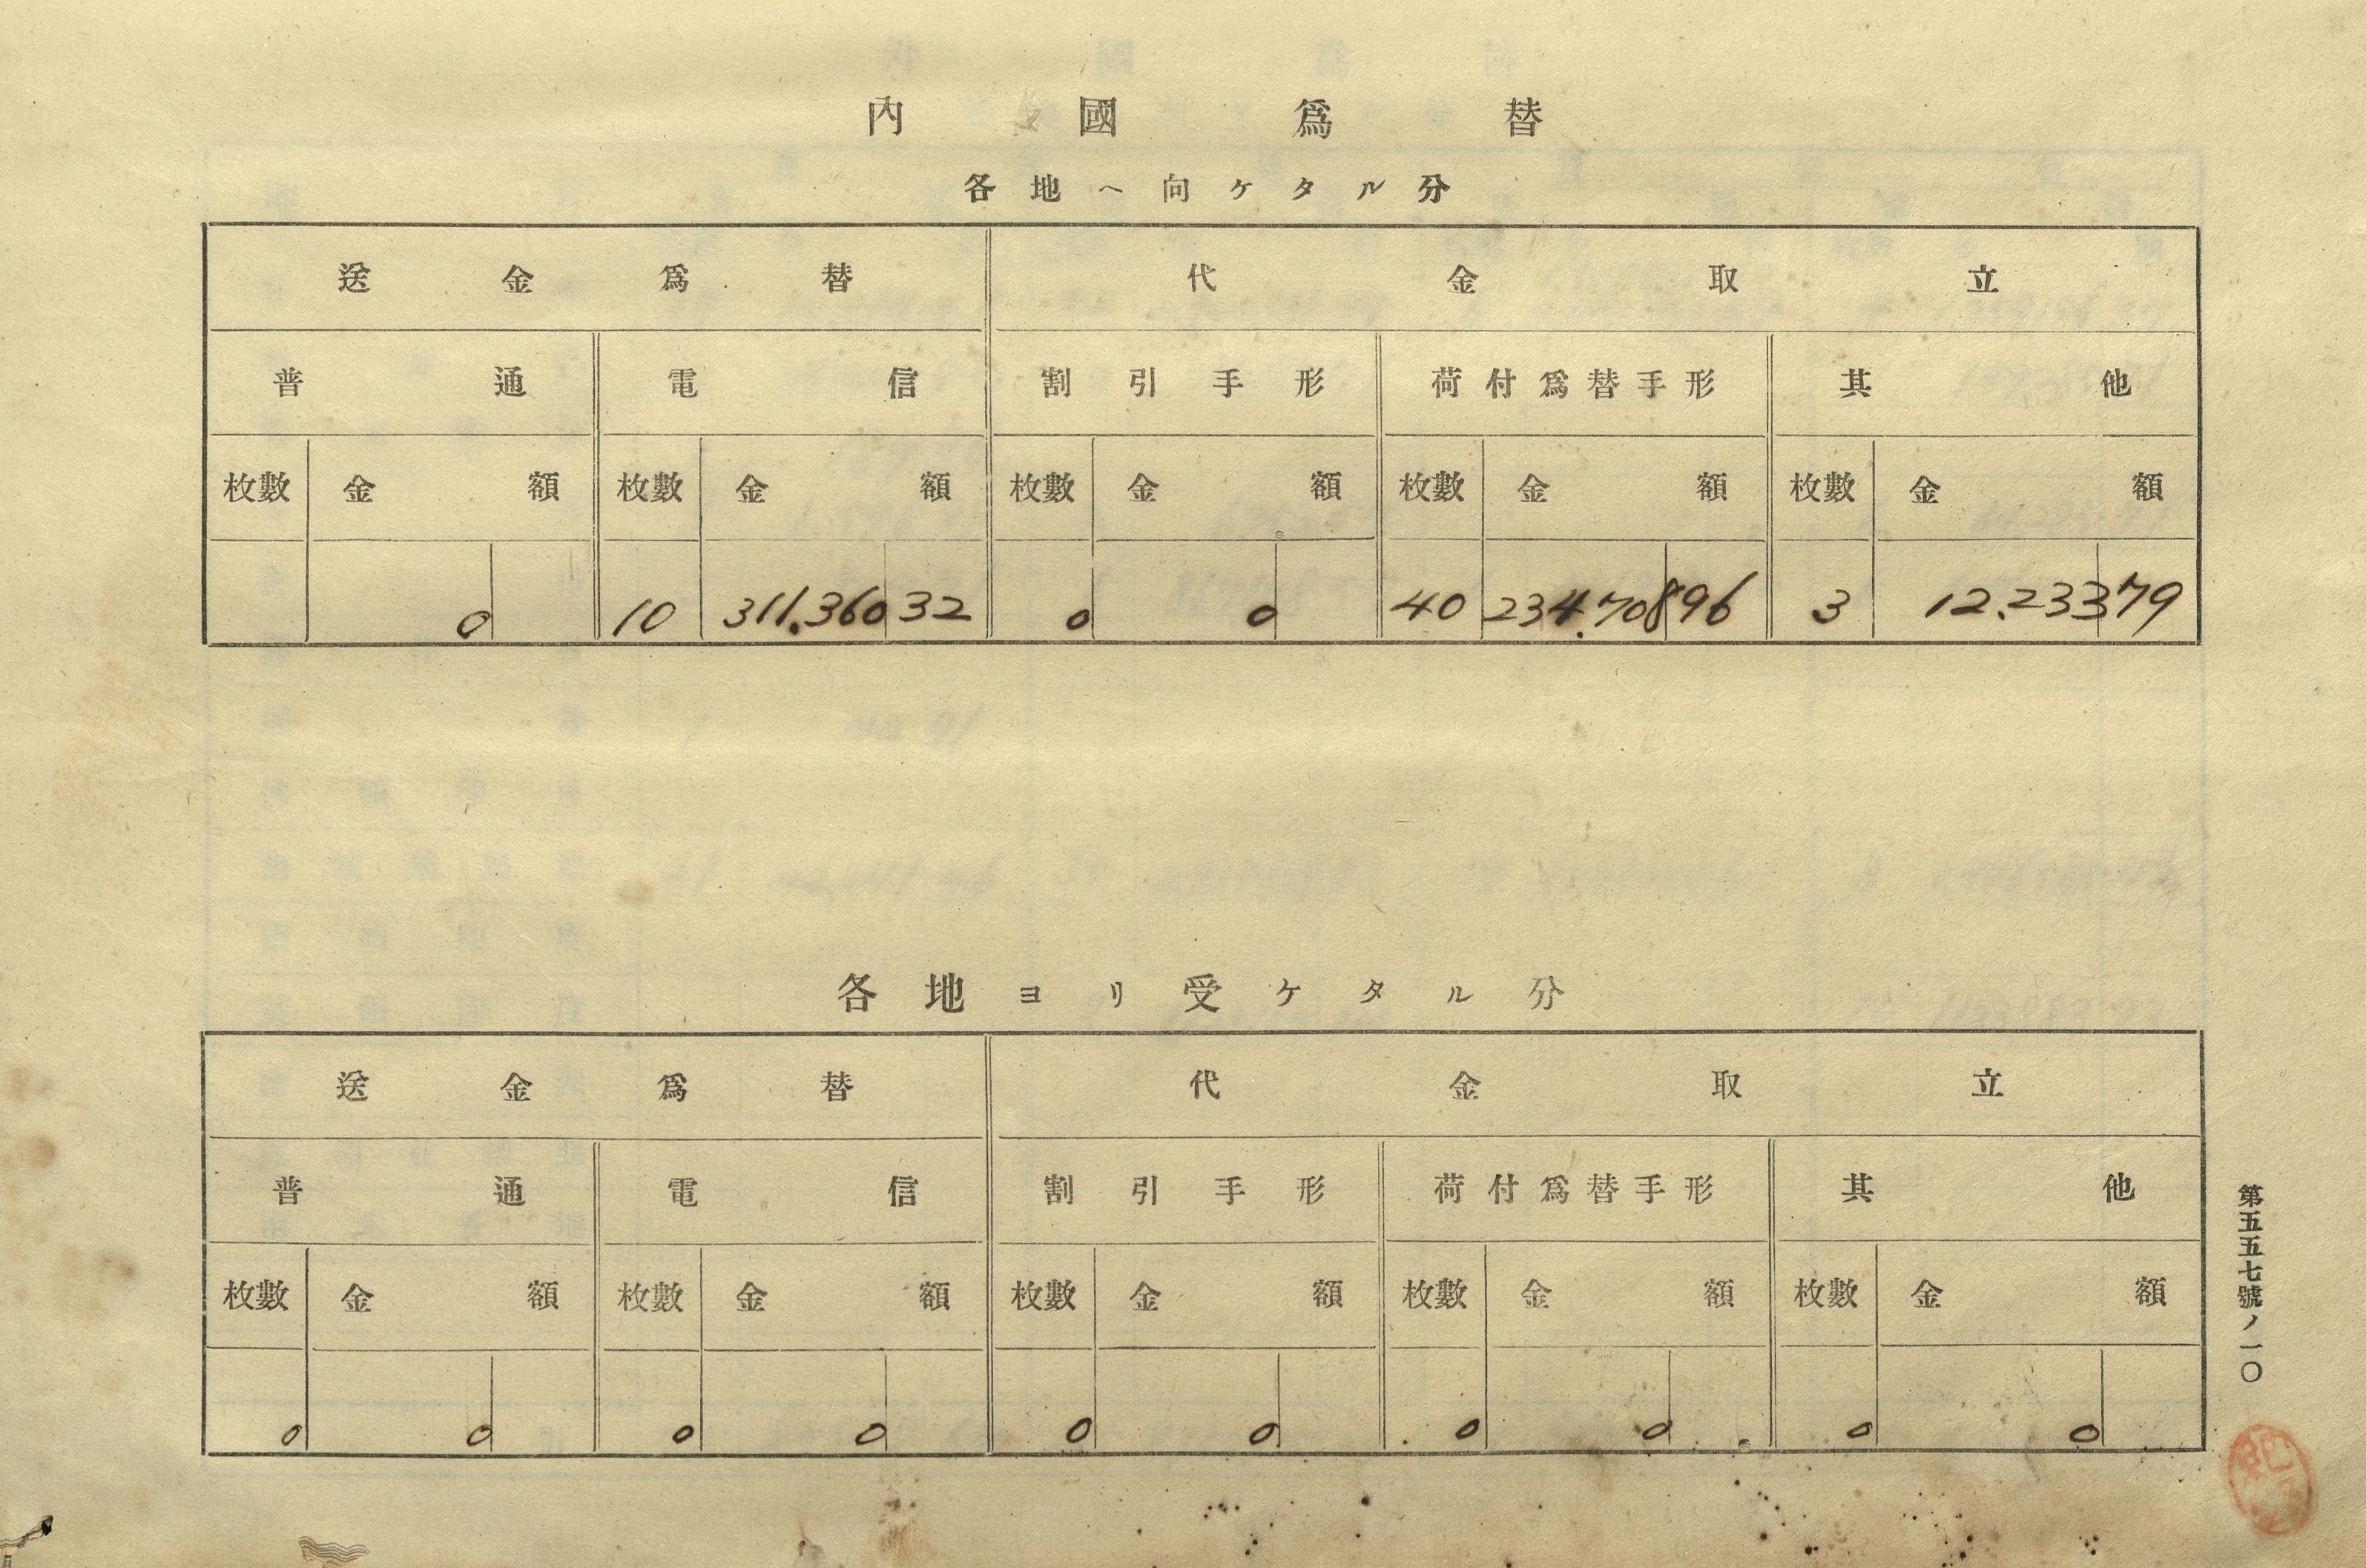 內國爲替
各地ヘ向ケタル分
送金爲替 代金取立
普通 電信 割引手形 荷付爲替手形 其他
枚數 金額 枚數 金額 枚數 金額 枚數 金額 枚數 金額
0 10 311.360 32 0 0 40 234.708 96 3 12.233 79
各地ヨリ受ケタル分
送金爲替 代金取立
普通 電信 割引手形 荷付爲替手形 其他
枚數 金額 枚數 金額 枚數 金額 枚數 金額 枚數 金額
0 0 0 0 0 0 0 0 0 0
第五五五七號ノ一〇